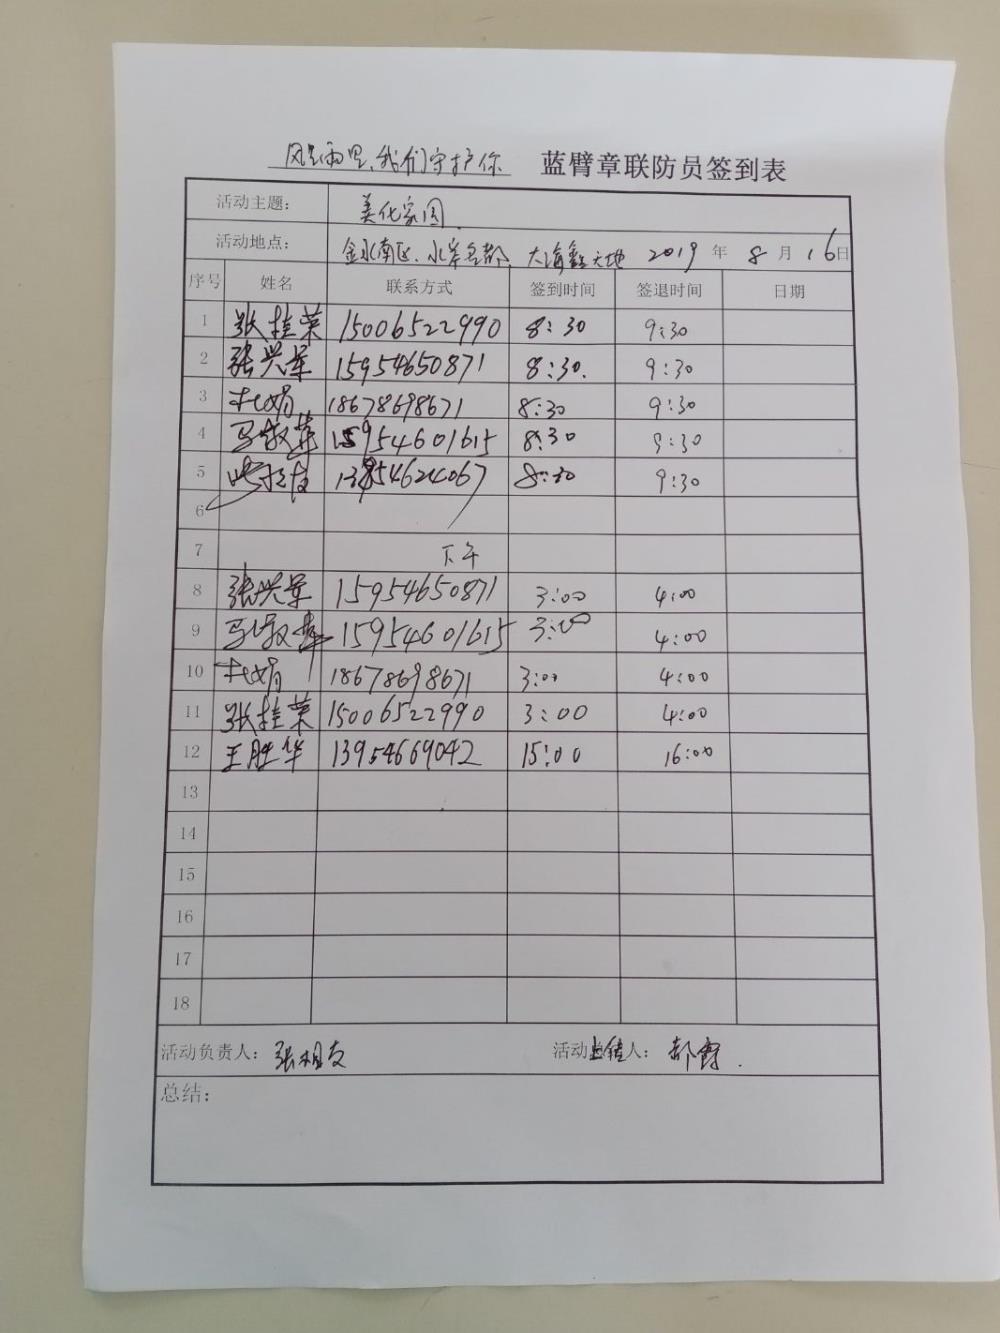 风里雨里、我们守护你 蓝臂章联防员签到表
活动主题： 美化家园
活动地点： 金水南区、水岸名都、大海鑫天地 2019 年 8 月 16 日
序号 姓名 联系方式 签到时间 签退时间 日期
1 张桂荣 15006522990 8:30 9:30
2 张兴军 15954650871 8:30 9:30
3 杜娟 18678698671 8:30 9:30
4 马教华 15954601615 8:30 9:30
5 13954624067 8:30 9:30
6
7 下午
8 张兴军 15954650871 3:00 4:00
9 马教华 15954601615 3:00 4:00
10 杜娟 18678698671 3:00 4:00
11 张桂荣 15006522990 3:00 4:00
12 王胜华 13954669042 15:00 16:00
13
14
15
16
17
18
活动负责人： 张相友 活动 人：
总结：